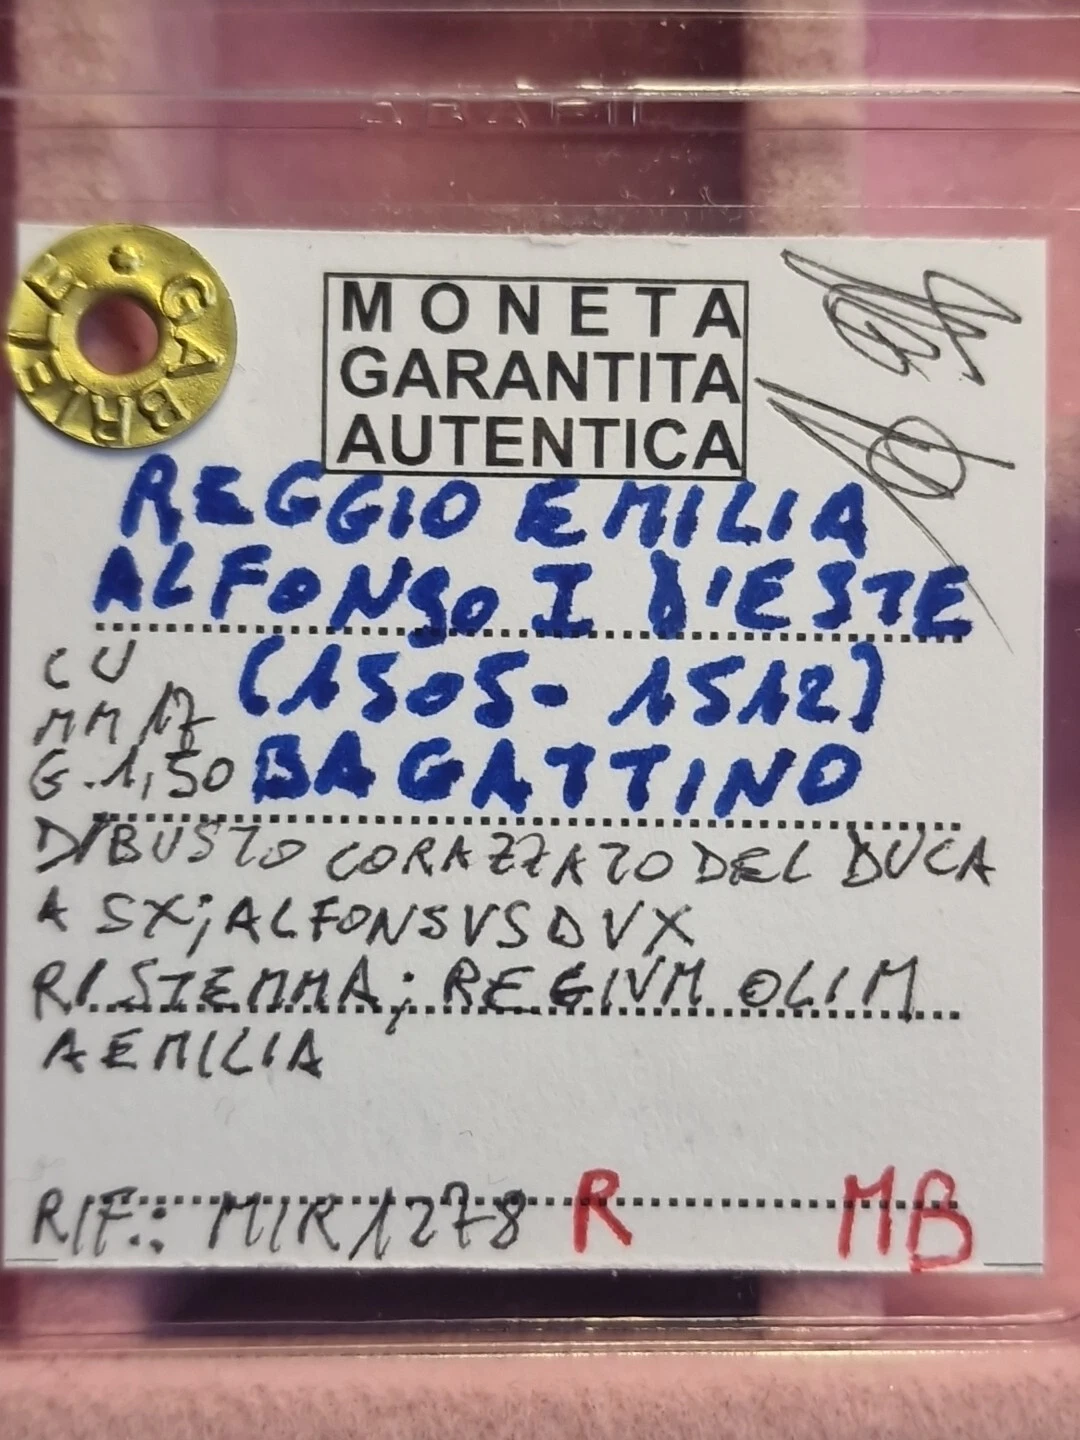 GABRIELE
MONETA
GARANTITA
AUTENTICA
REGGIO EMILIA
ALFONSO I D'ESTE
(1505-1512)
CU
MM 17
G. 1,50
BAGATTINO
D/BUSTO CORAZZATO DEL DUCA
A SX; ALFONSVS DVX
R/. STEMMA; REGIVM OLIM
AEMILIA
RIF.: MIR 1278 R MB